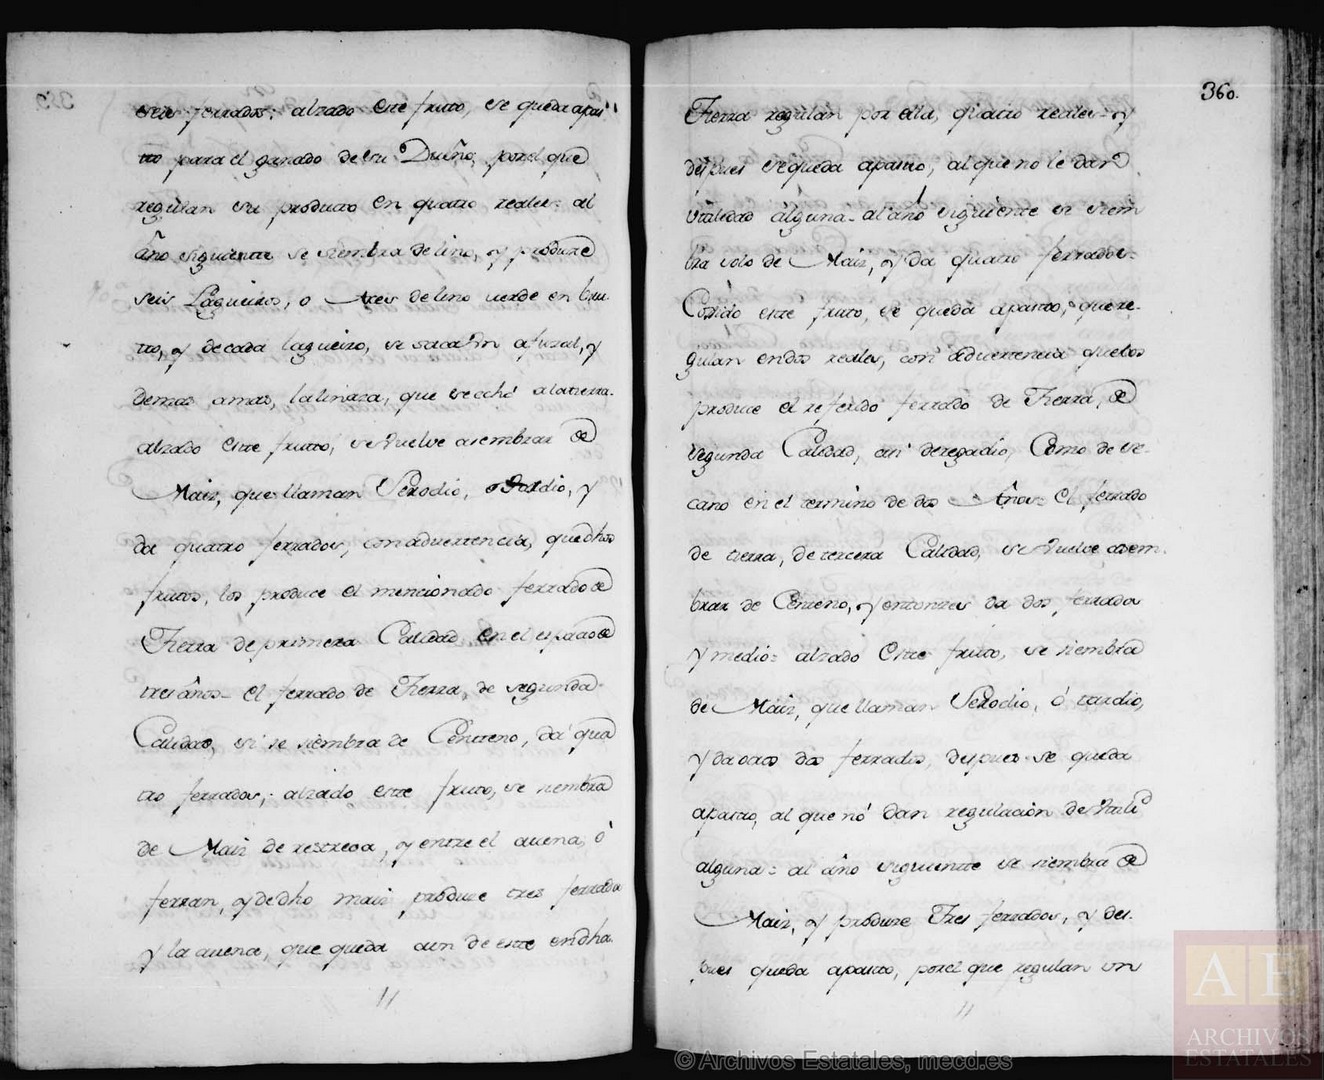 seis ferrados; alzado este fruto, se queda apas
tto para el ganado de su Dueño; por el que
regulan su producto en quatro reales= al
año siguiente se siembra de lino, y produce
seis Lagueiros, o Ares de lino verde en bru-
tto, y de cada lagueiro, se saca un afusal, y
demas amas, la linaza, que se echó a la tierra.
alzado este frutto, se vuelve asembrar de
Maiz, que llaman Serodio, o tardio, y
da quatro ferrados, con advertencia, que dhos
frutos, los produce el mencionado ferrado de
Tierra de primera Calidad en el espacio de
tres años= el ferrado de Tierra, de segunda
Calidad, si se siembra de Centeno, dá qua
tro ferrados; alzado este fruto, se siembra
de Maiz de restreva, y entre el avena, ó
ferran, y de dho maiz produce tres ferrados
y la avena, que queda aun de este en dha.
360.
Tierra regulan por ella, quatro reales= y
despues se queda apasto, al que no le dan
utilidad alguna= al año siguiente se siem
bra solo de Maiz, y da quatro ferrados=
Cojido este fruto, se queda apasto, que re-
gulan en dos reales, con advertencia que los
produce el referido ferrado de Tierra, de
segunda Calidad, asi de regadio, Como de se-
cano en el termino de dos Años= El ferrado
de tierra, de tercera Calidad, se vuelve asem
brar de Centeno, y entonces da dos ferrados
y medio= alzado este fruto, se siembra
de Maiz, que llaman Serodio, ó tardio,
y da otros dos ferrados, despues se queda
apasto, al que nó dan regulacion de utilid
alguna= al año siguiente se siembra de
Maiz, y produce Tres ferrados, y des-
pues queda apasto, por el que regulan un
© Archivos Estatales, mecd.es
AE
ARCHIVOS
ESTATALES